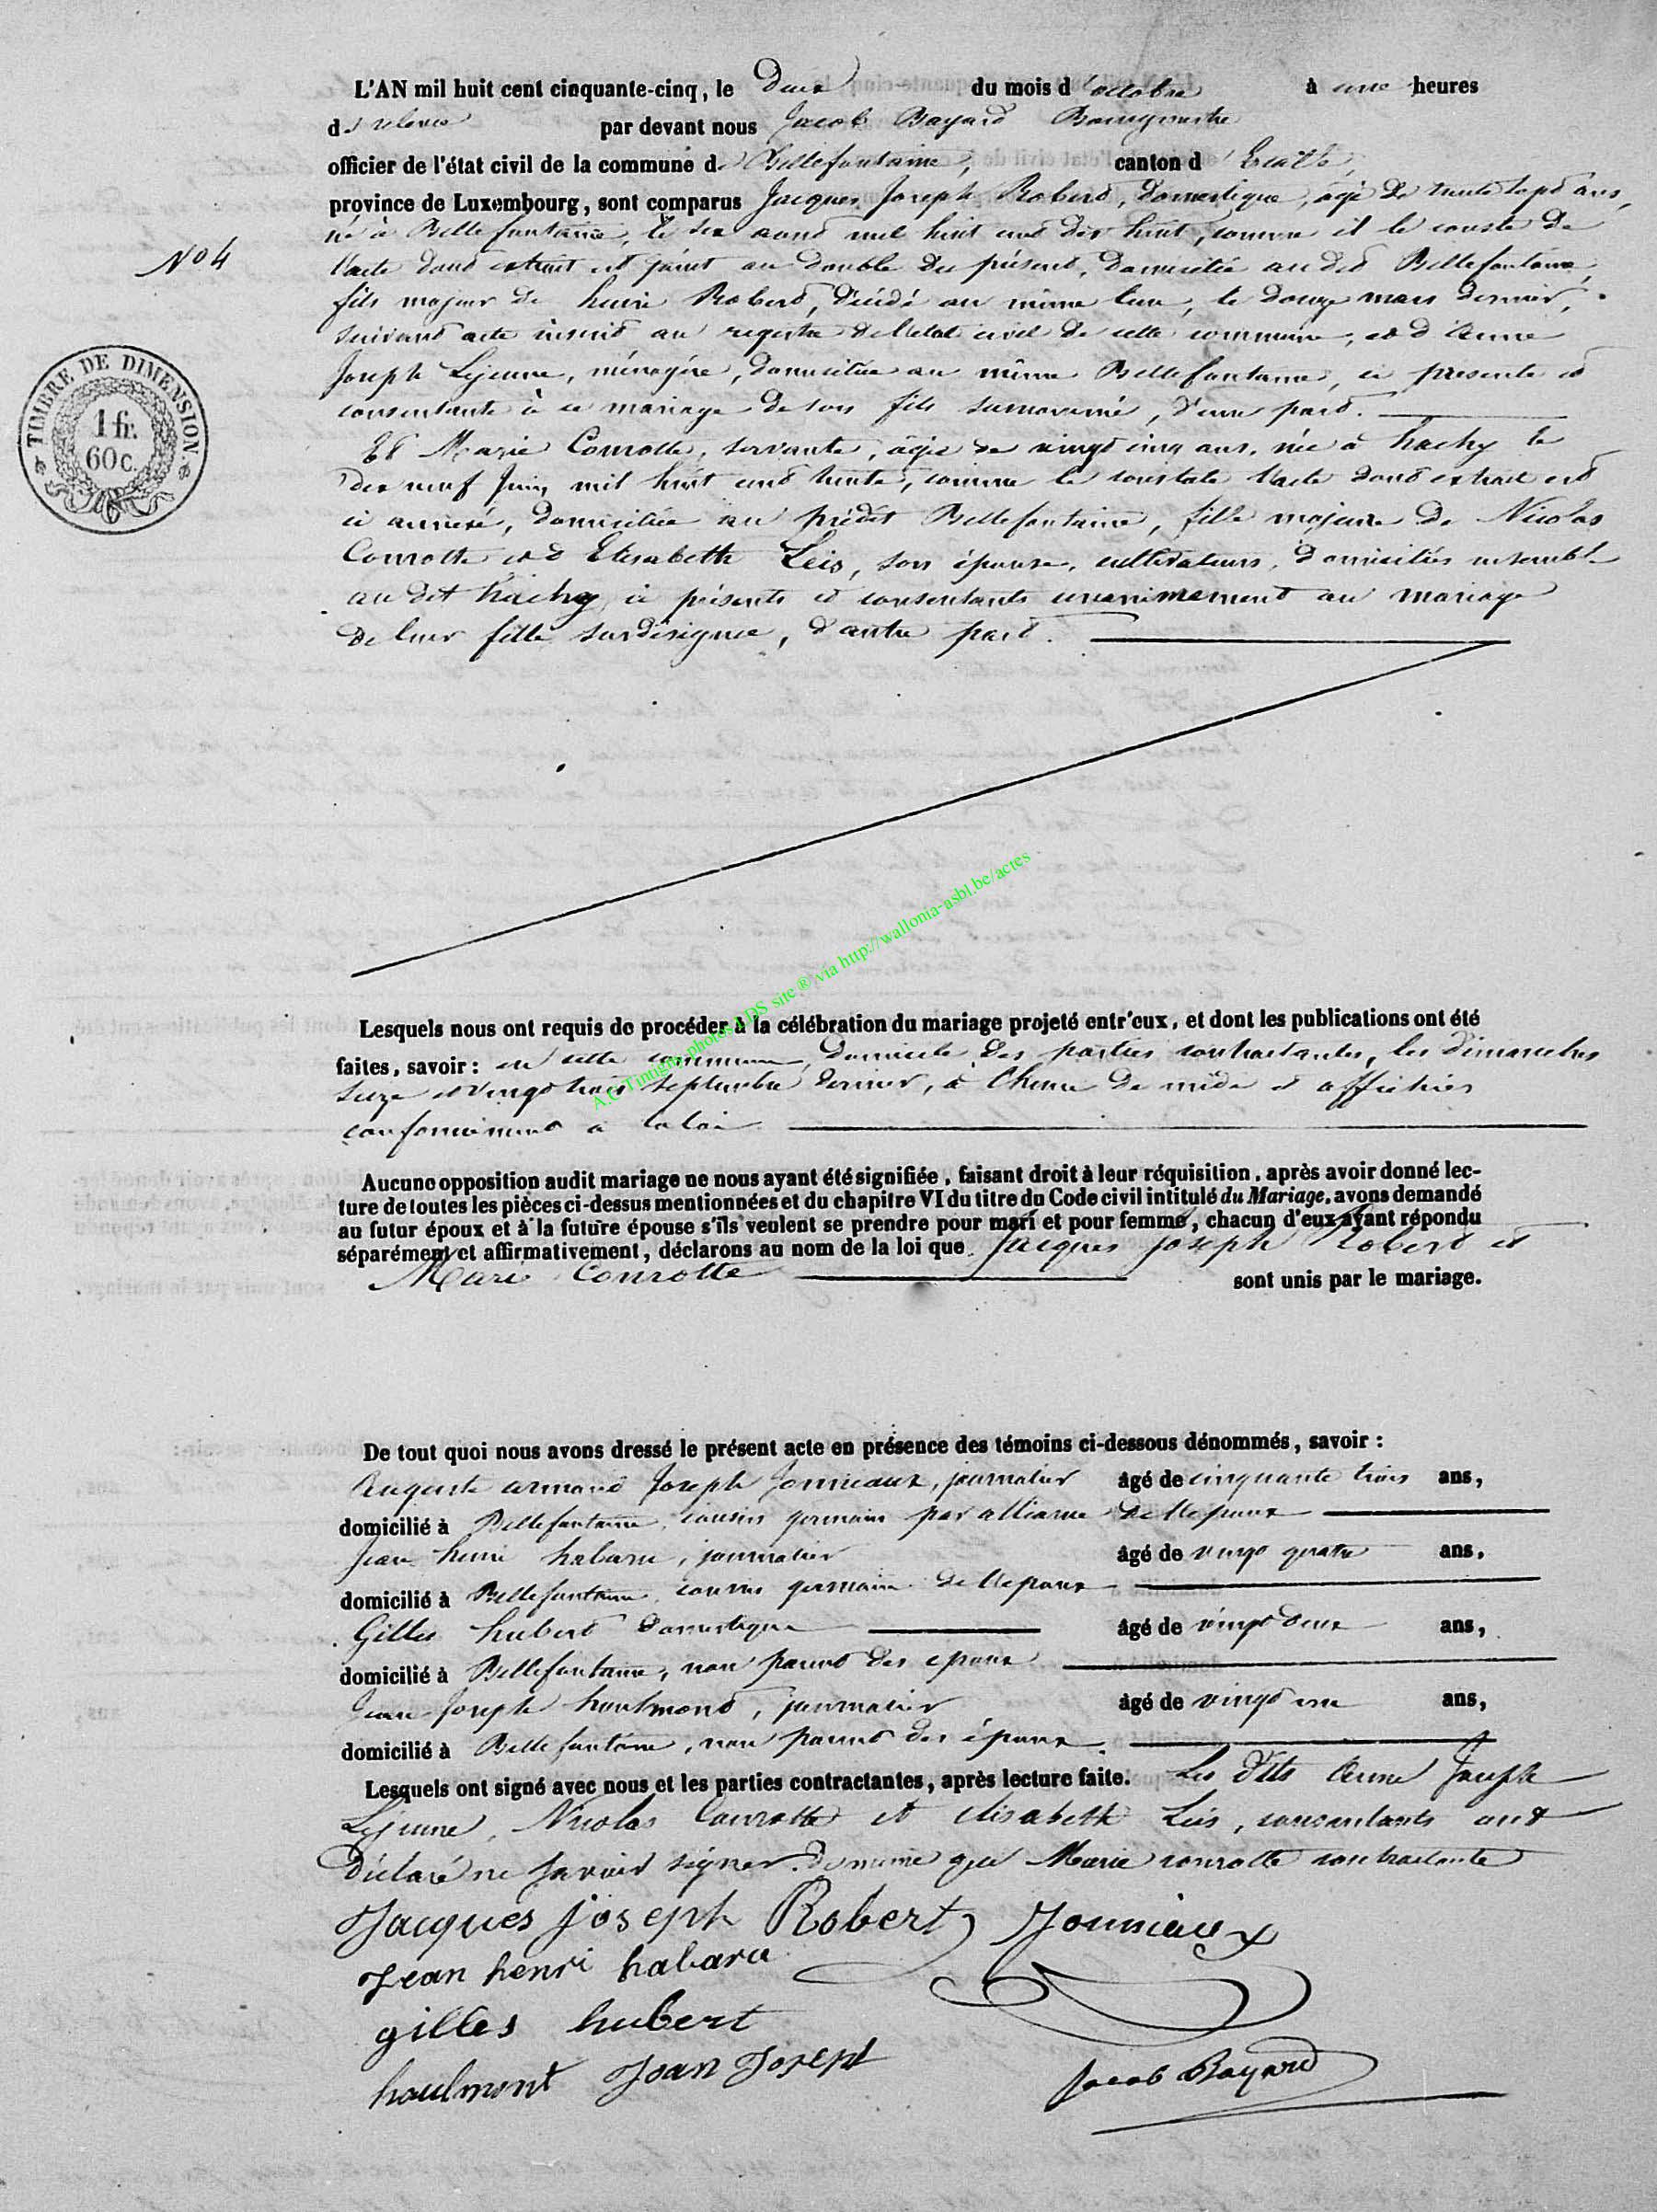 L'AN mil huit cent cinquante-cinq, le Deux du mois d'octobre à une heures
de relevée par devant nous Jacob Bayard Bourgmestre
officier de l'état civil de la commune de Bellefontaine, canton d'Etalle,
province de Luxembourg, sont comparus Jacques Joseph Robert, domestique, âgé de trente sept ans,
né à Bellefontaine, le six août mil huit cent dix huit, comme il le conste de
N° 4
l'acte dont extrait est joint au double du présent, domicilié au dit Bellefontaine,
fils majeur de henri Robert, décédé au même lieu, le douze mars dernier,
suivant acte inscrit au registre de l'état civil de cette commune, et d'Anne
Joseph Lejeune, ménagère, domiciliée au même Bellefontaine, ci présente et
consentante à ce mariage de son fils surnommé, d'une part.
TIMBRE DE DIMENSION
1 fr.
60 c.
Et Marie Conrotte, servante, âgée de vingt cinq ans, née à hachy le
dix neuf Juin mil huit cent trente, comme le constate l'acte dont extrait est
ci annexé, domiciliée au prédit Bellefontaine, fille majeure de Nicolas
Conrotte et d'Elisabeth Leis, son épouse, cultivateurs, domiciliés ensemble
au dit hachy, ci présents et consentants unanimement au mariage
de leur fille susdésignée, d'autre part.
A.C. Tinogra-photos LDS site ® via http://wallonia-asbl.be/actes
Lesquels nous ont requis de procéder à la célébration du mariage projeté entr'eux, et dont les publications ont été
faites, savoir : en cette commune, domicile des parties contractantes, les dimanches
seize et vingt trois septembre dernier, à l'heure de midi et affichées
conformément à la loi.
Aucune opposition audit mariage ne nous ayant été signifiée, faisant droit à leur réquisition, après avoir donné lec-
ture de toutes les pièces ci-dessus mentionnées et du chapitre VI du titre du Code civil intitulé du Mariage, avons demandé
au futur époux et à la future épouse s'ils veulent se prendre pour mari et pour femme, chacun d'eux ayant répondu
séparément et affirmativement, déclarons au nom de la loi que Jacques Joseph Robert et
Marie Conrotte sont unis par le mariage.
De tout quoi nous avons dressé le présent acte en présence des témoins ci-dessous dénommés, savoir :
Auguste armand Joseph Jonniaux, journalier âgé de cinquante trois ans,
domicilié à Bellefontaine, cousin germain par alliance de l'époux
Jean henri habaru, journalier âgé de vingt quatre ans,
domicilié à Bellefontaine, cousin germain de l'époux
Gilles hubert domestique âgé de vingt deux ans,
domicilié à Bellefontaine, non parent des époux
Jean Joseph houlmont, journalier âgé de vingt un ans,
domicilié à Bellefontaine, non parent des époux.
Lesquels ont signé avec nous et les parties contractantes, après lecture faite. Les dits Anne Joseph
Lejeune, Nicolas Conrotte et Elisabeth Leis, consentants ont
déclaré ne savoir signer. de même que Marie conrotte contractante
Jacques joseph Robert Jonniaux
Jean henri habaru
gilles hubert
houlmont Jean Joseph Jacob Bayard